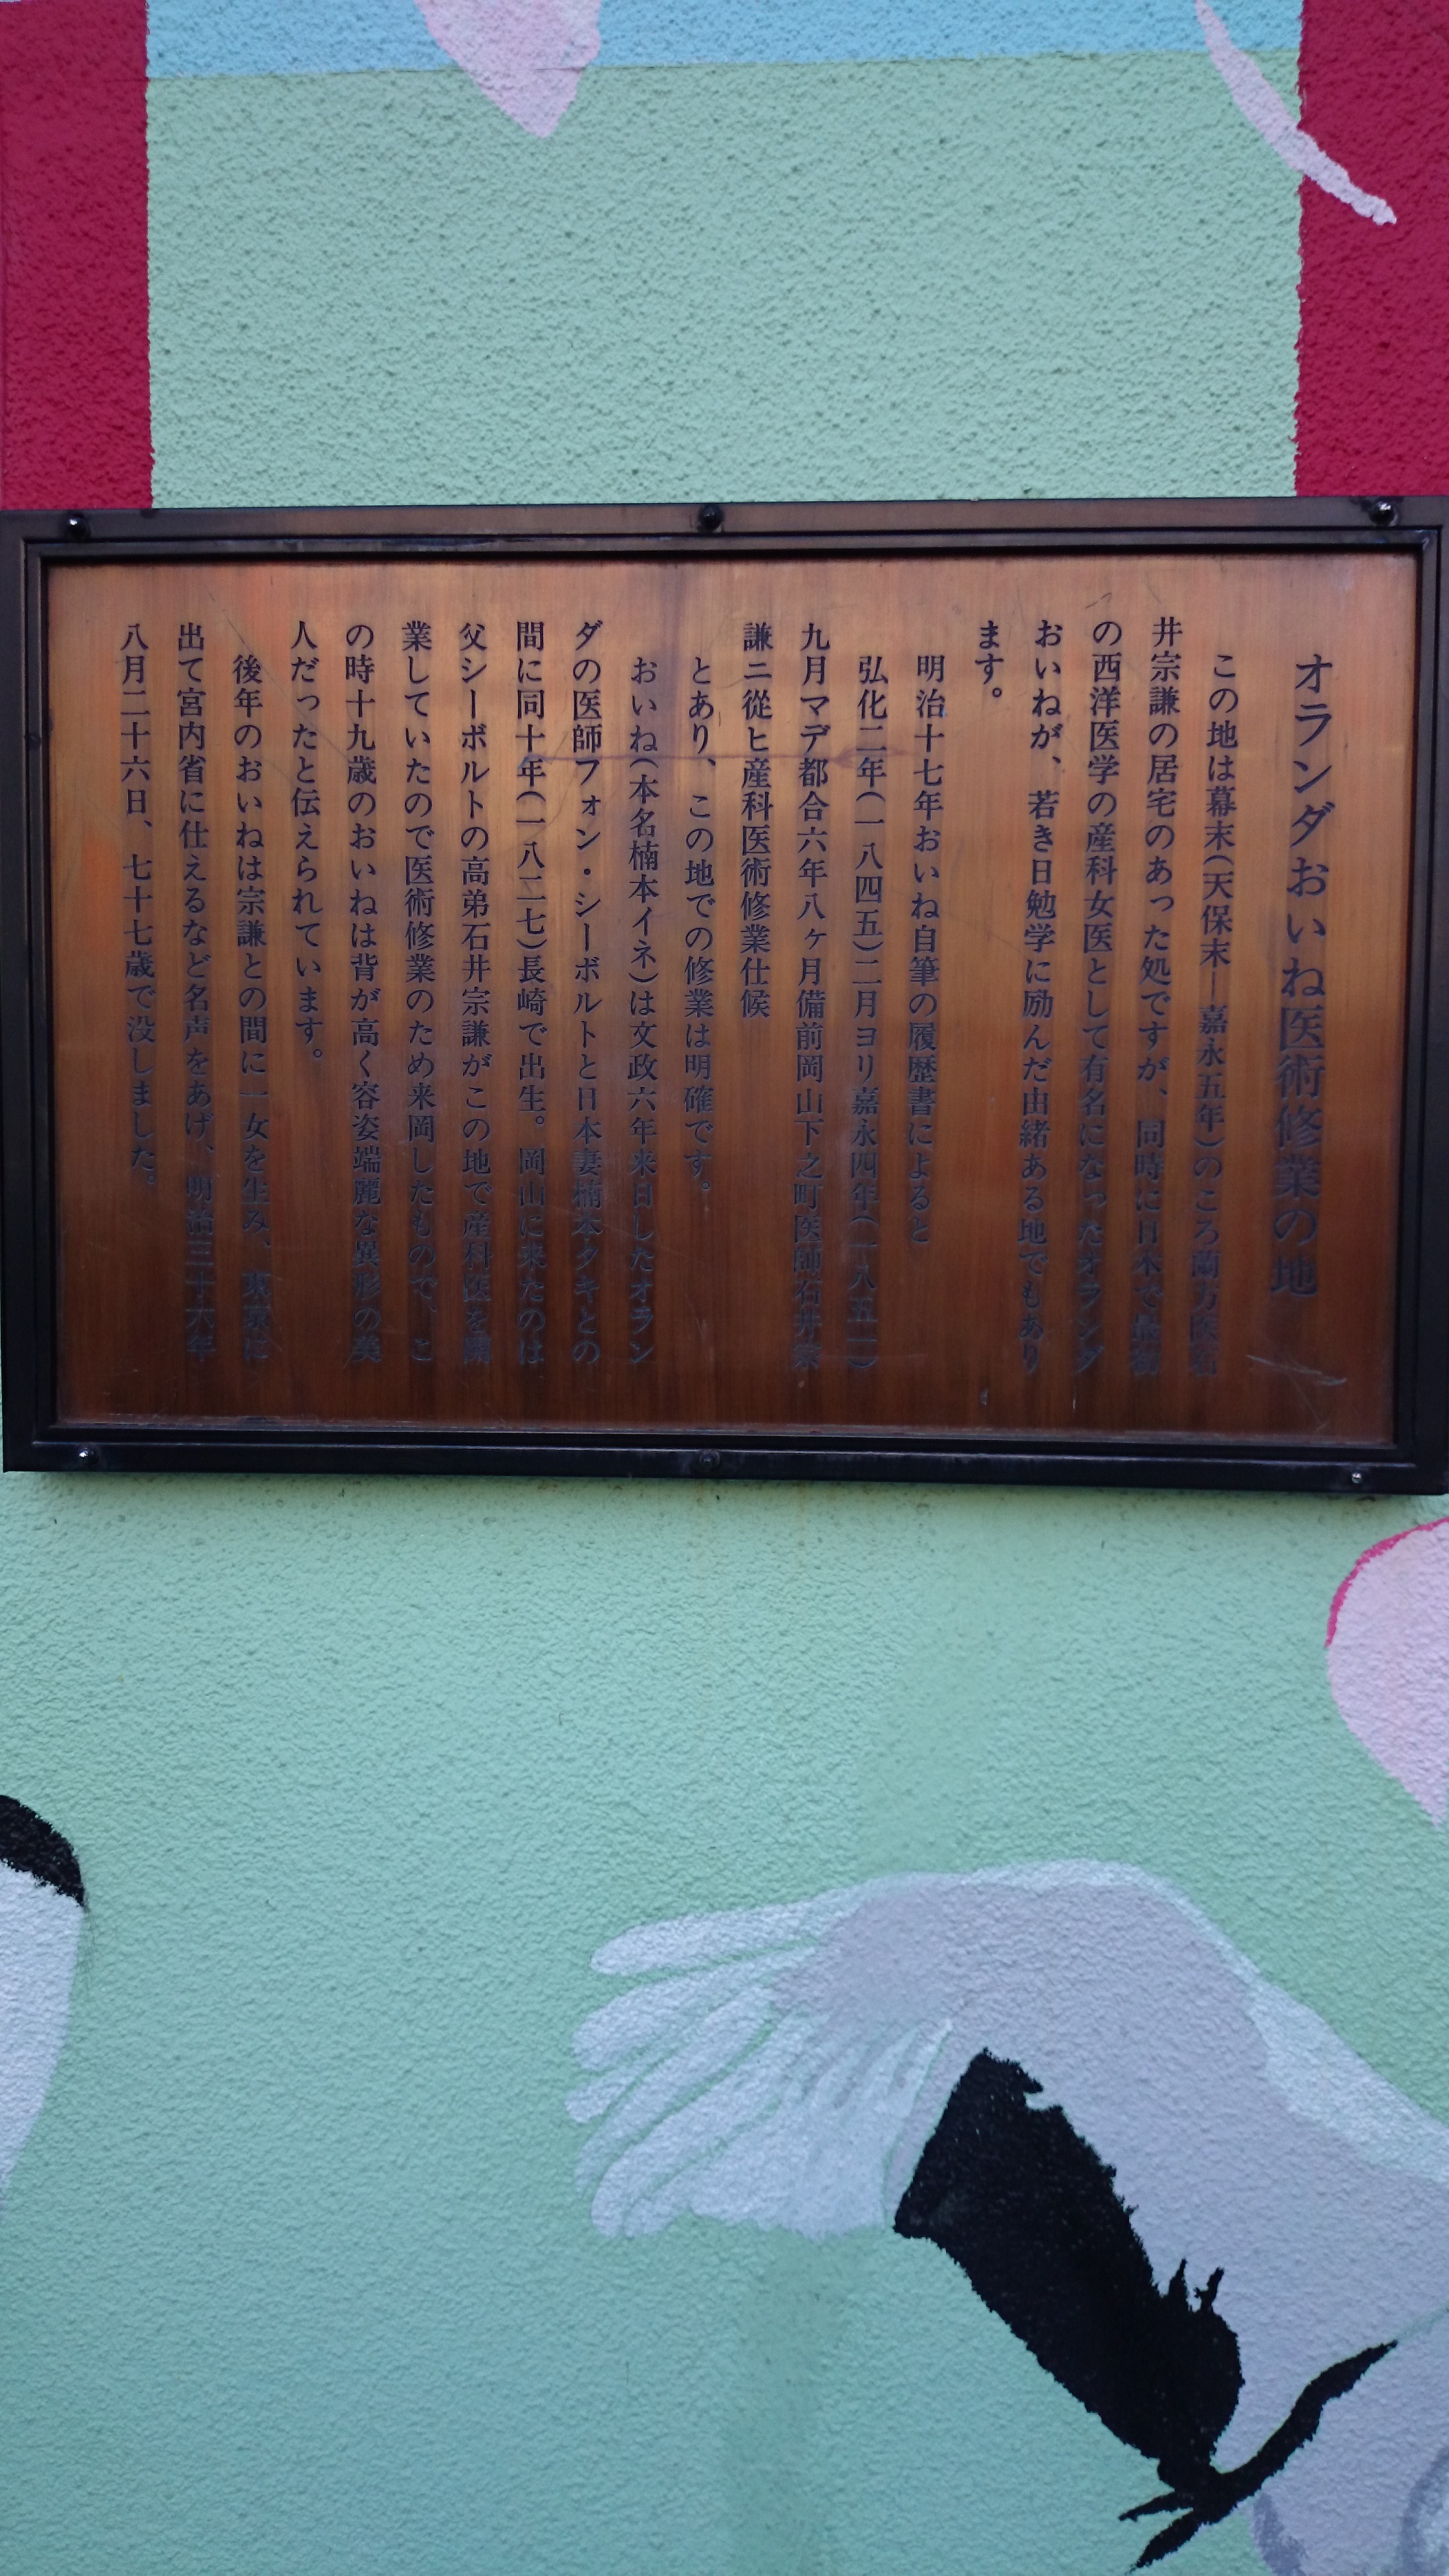 オランダおいね医術修業の地
この地は幕末(天保末―嘉永五年)のころ蘭方医石
井宗謙の居宅のあった処ですが、同時に日本で最初
の西洋医学の産科女医として有名になったオランダ
おいねが、若き日勉学に励んだ由緒ある地でもあり
ます。
明治十七年おいね自筆の履歴書によると
弘化二年(一八四五)二月ヨリ嘉永四年(一八五一)
九月マデ都合六年八ヶ月備前岡山下之町医師石井宗
謙ニ從ヒ産科医術修業仕候
とあり、この地での修業は明確です。
おいね(本名楠本イネ)は文政六年来日したオラン
ダの医師フォン・シーボルトと日本妻楠本タキとの
間に同十年(一八二七)長崎で出生。岡山に来たのは
父シーボルトの高弟石井宗謙がこの地で産科医を開
業していたので医術修業のため来岡したもので、こ
の時十九歳のおいねは背が高く容姿端麗な異形の美
人だったと伝えられています。
後年のおいねは宗謙との間に一女を生み、東京に
出て宮内省に仕えるなど名声をあげ、明治三十六年
八月二十六日、七十七歳で没しました。